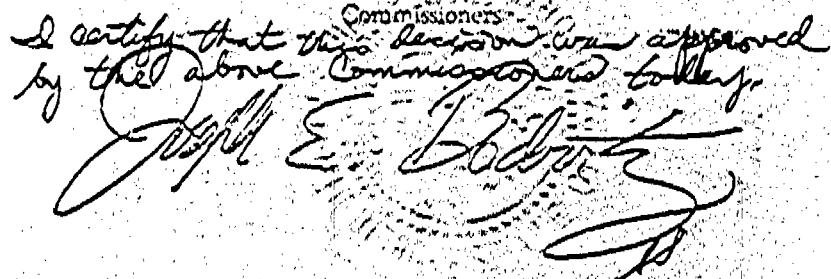 Commissioners
I certify that this decision was approved
by the above Commissioners today.
Joseph E. Bodovitz